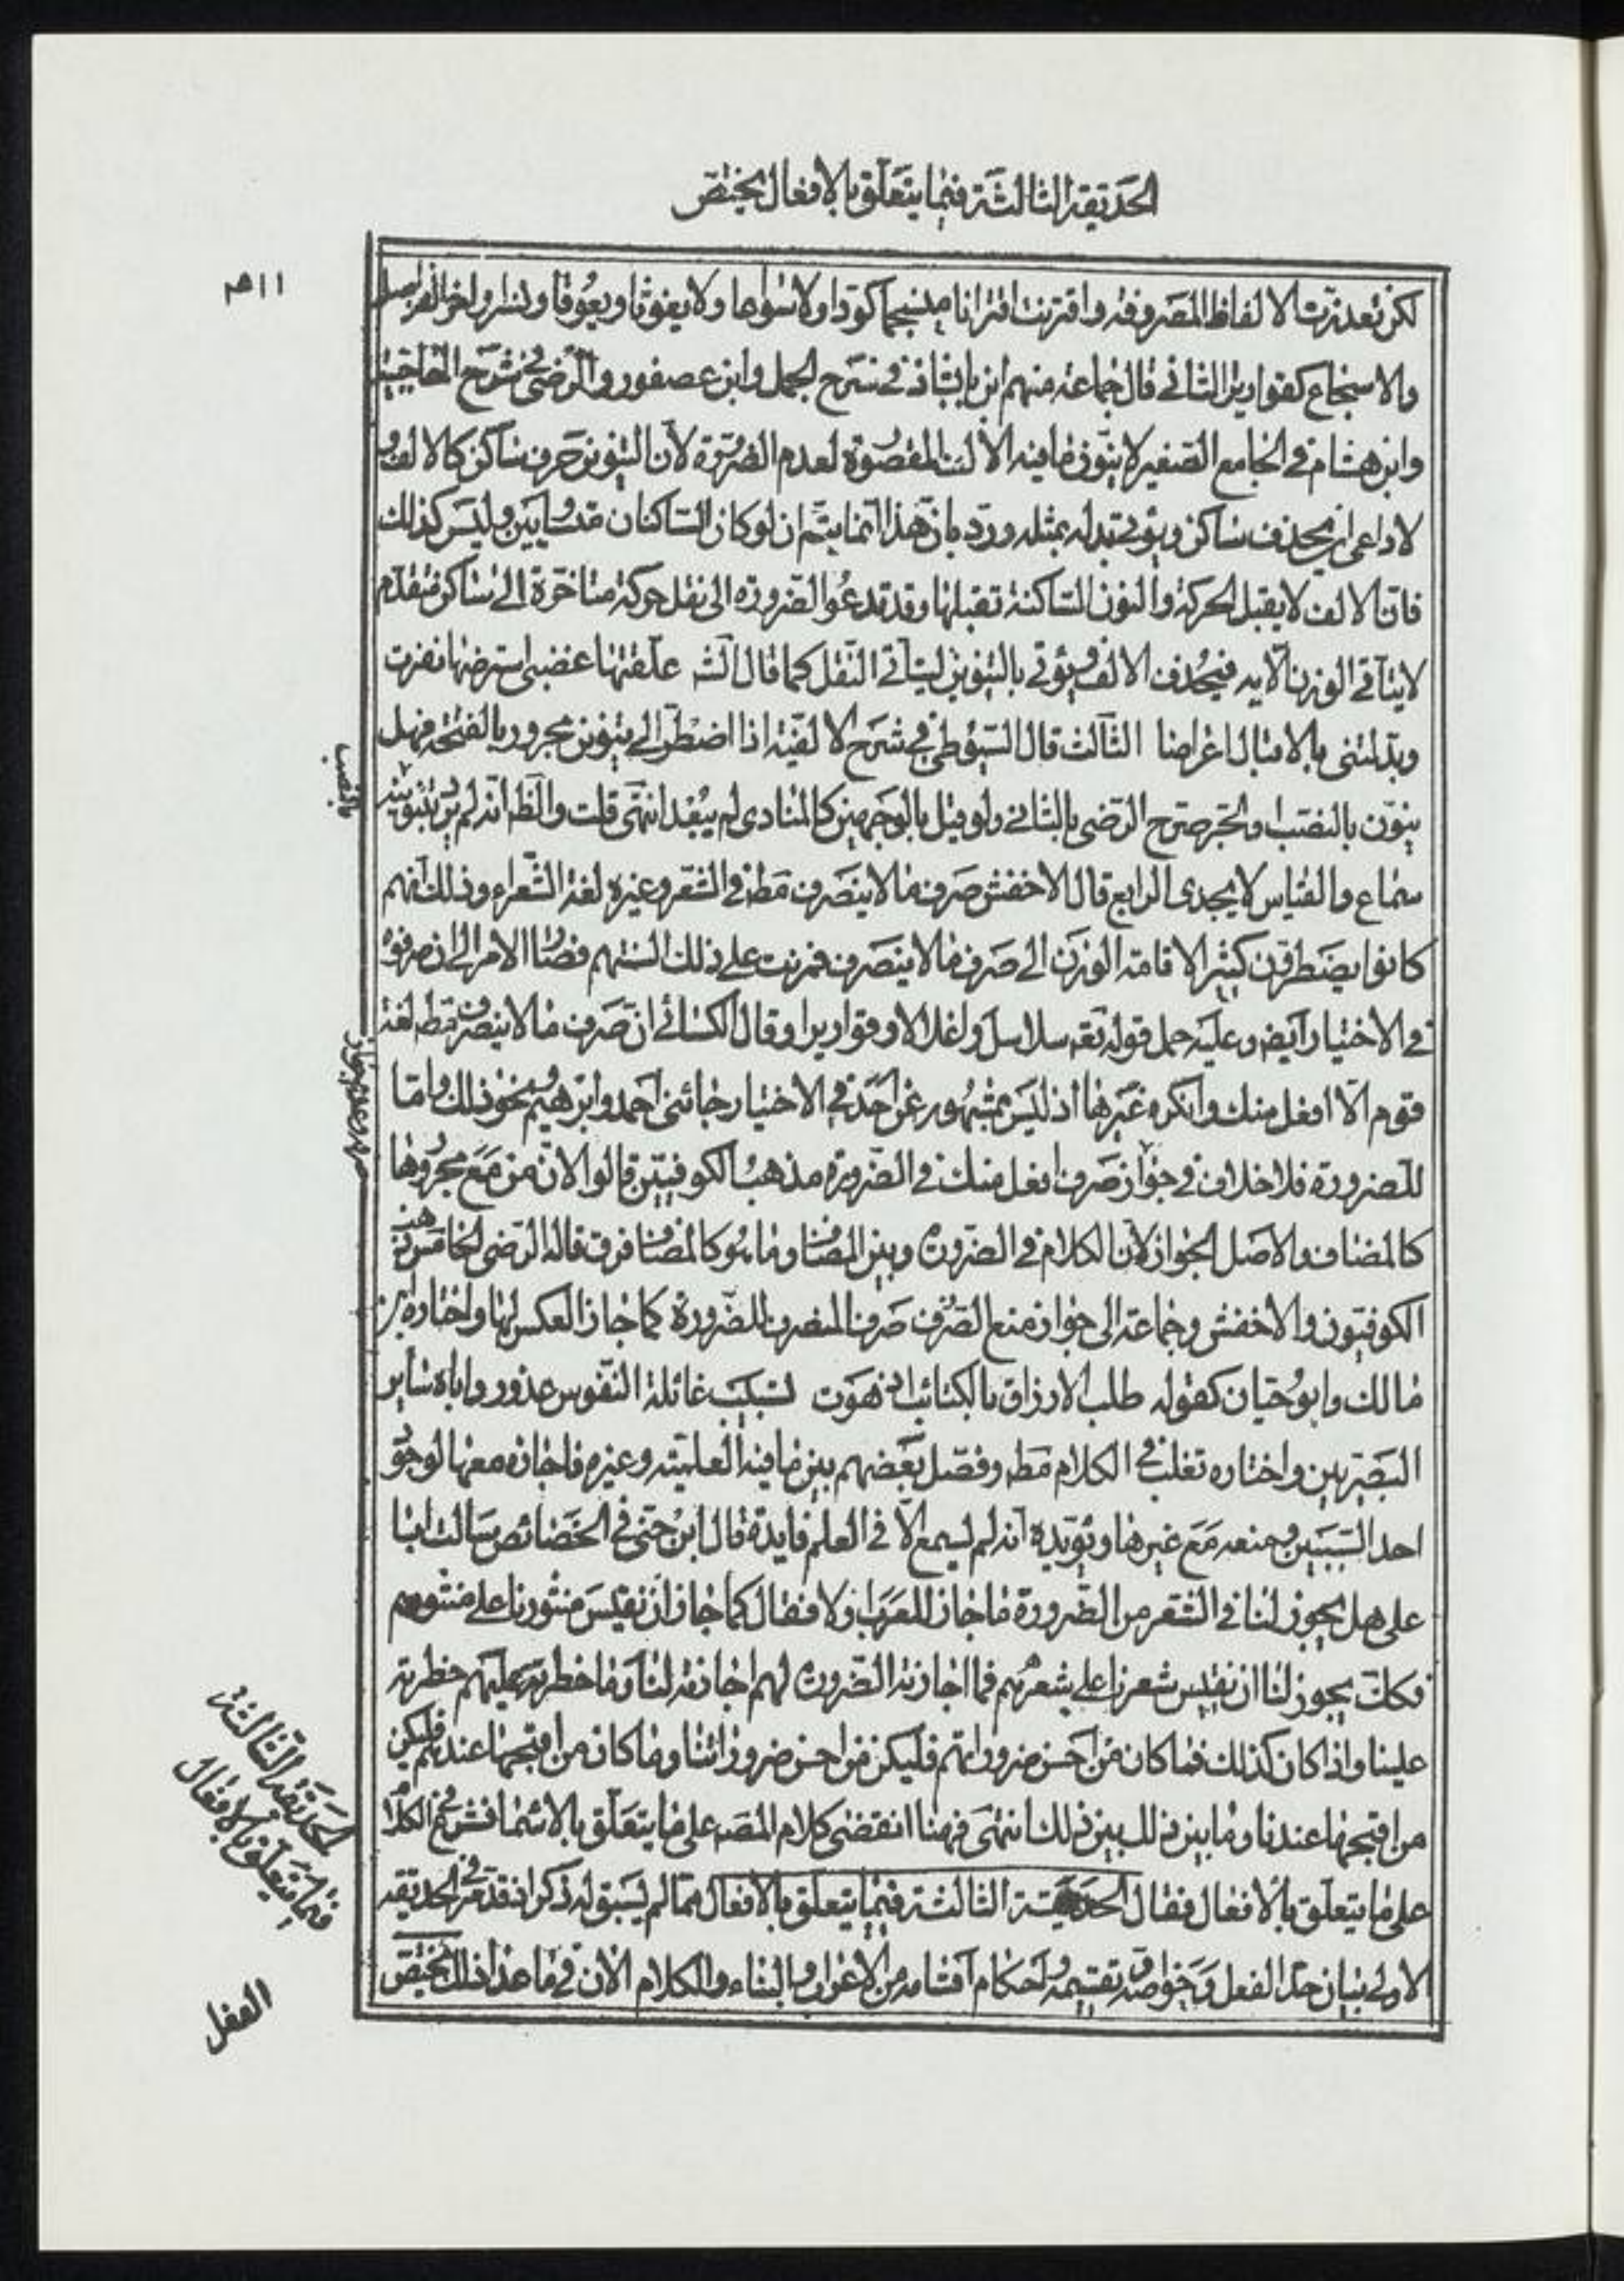 الحديقة الثالثة فيما يتعلق بالافعال يختص
٣١١
لكن تعددت الالفاظ المصروفة واقترنت اقترانا منسجما كودا ولا سواعا ولا يغوثا ويعوقا ونسرا واخر
والاسجاع كقواريرا الثاني قال جماعة منهم ابن بابشاذ في شرح الجمل وابن عصفور والرضي في شرح الحاجبية
وابن هشام في الجامع الصغير لا ينون ما فيه الالف المقصورة لعدم الضرورة لان التنوين حرف ساكن كالالف و
لا داعي ان يحذف ساكن ويؤتى بدله بمثله ورد بان هذا انما يتم ان لو كان الساكنان متساويين وليس كذلك
فان الالف لا يقبل الحركة والنون الساكنة تقبلها وقد تدعو الضرورة الى نقل حركة متاخرة الى ساكن متقدم
لا يتاتى الوزن الا به فيحذف الالف ويؤتى بالتنوين ليتاتى النقل كما قال الش علقتها غضبى استرضها نفرت
وبدلتني بالاقبال اعراضا الثالث قال السيوطي في شرح الالفية اذا اضطر الى تنوين مجرور بالفتحة فهل
ينون بالنصب او الجر صرح الرضي بالثاني ولو قيل بالوجهين كالمنادى لم يبعد انتهى قلت والظ انه لم يرد بتنوينه
بالنصب
سماع والقياس لا يجدي الرابع قال الاخفش صرف ما لا ينصرف مط في الشعر وغيره لغة الشعراء وذلك انهم
كانوا يضطرون كثيرا لاقامة الوزن الى صرف ما لا ينصرف فمرنت على ذلك السنتهم فصار الامر الى ان صرفوه
في الاختيار ايض وعليه حمل قوله تعه سلاسل واغلالا وقواريرا وقال الكسائي ان صرف ما لا ينصرف مط لغة
قوم الا افعل منك وانكره غيرهما اذ ليس بمشهور عن احد في الاختيار جائني احمد وابرهيم ونحو ذلك واما
للضرورة فلا خلاف في جواز صرف افعل منك في الضرورة مذهب الكوفيين قالوا لان من مع مجرورها
كالمضاف والاصل الجواز لان الكلام في الضرورة وبين المضاف وما هو كالمضاف فرق قاله الرضي الخامس ذهب
الكوفيون والاخفش وجماعة الى جواز منع الصرف صرف المنصرف للضرورة كما جاز العكس لها واختاره ابن
مالك وابو حيان كقوله طلب الارزاق بالكتائب اذ هوت بشبيب غائلة النفوس غدور واباه ساير
البصريين واختاره تغلب في الكلام مط وفصل بعضهم بين ما فيه العلمية وغيره فاجازه معها لوجود
احد السببين ومنعه مع غيرها ويؤيده انه لم يسمع الا في العلم فايدة قال ابن جني في الخصائص سالت ابا
علي هل يجوز لنا في الشعر من الضرورة ما جاز للعرب او لا فقال كما جاز ان نقيس منثورنا على منثورهم
فكك يجوز لنا ان نقيس شعرنا على شعرهم فما اجازته الضرورة لهم اجازته لنا وما حظرته عليهم حظرته
علينا واذا كان كذلك فما كان من احسن ضروراتهم فليكن من احسن ضروراتنا وما كان من اقبحها عندهم فليكن
من اقبحها عندنا وما بين ذلك بين ذلك انتهى فهنا انقضى كلام المصه على ما يتعلق بالاسماء فشرع في الكلام
على ما يتعلق بالافعال فقال الحديقة الثالثة فيما يتعلق بالافعال مما لم يسبق له ذكر اذ تقدم في الحديقة
الاولى بيان حد الفعل وخواصه وتقسيمه واحكام اقسامه من الاعراب والبناء والكلام الان في ما عدا ذلك يختص
الحديقة الثالثة
فيما يتعلق بالافعال
الفعل